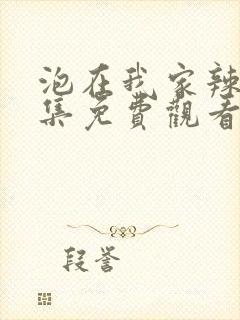 泡在我家辣
集免費觀看
段誉